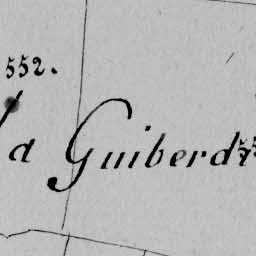 552.
la Guiberd